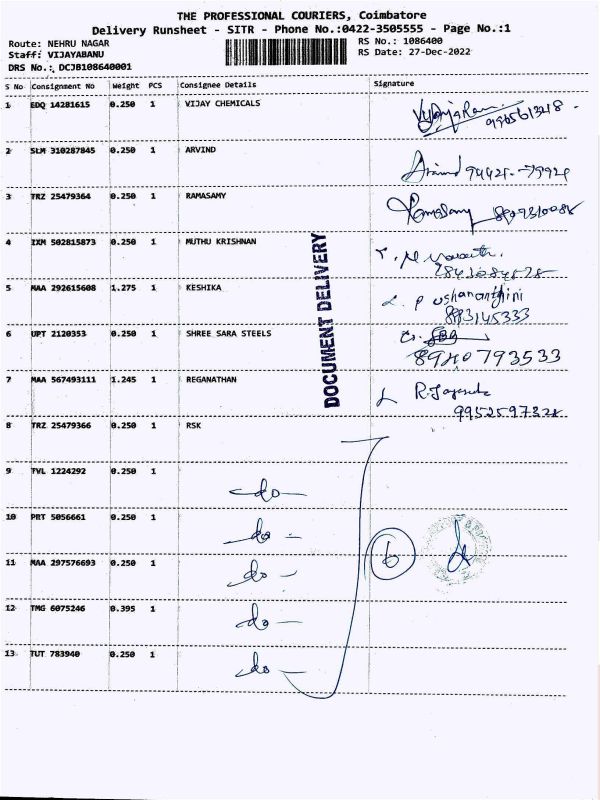 THE PROFESSIONAL COURIERS, Coimbatore
Delivery Runsheet - SITR - Phone No.:0422-3505555 - Page No.:1
Route: NEHRU NAGAR
RS No.: 1086400
Staff: VIJAYABANU
RS Date: 27-Dec-2022
DRS No.: DCJB108640001
S No Consignment No Weight PCS Consignee Details Signature
1 EDQ 14281615 0.250 1 VIJAY CHEMICALS
2 SLM 310287845 0.250 1 ARVIND
3 TRZ 25479364 0.250 1 RAMASAMY
Ramasamy
4 IXM 502815873 0.250 1 MUTHU KRISHNAN
DOCUMENT DELIVERY
5 MAA 292615608 1.275 1 KESHIKA
P ushananthini
893145333
6 UPT 2120353 0.250 1 SHREE SARA STEELS
8940793533
7 MAA 567493111 1.245 1 REGANATHAN
9952597328
8 TRZ 25479366 0.250 1 RSK
9 TVL 1224292 0.250 1
do
10 PRT 5056661 0.250 1
do
11 MAA 297576693 0.250 1
do
6
12 TMG 6075246 0.395 1
do
13 TUT 783940 0.250 1
do